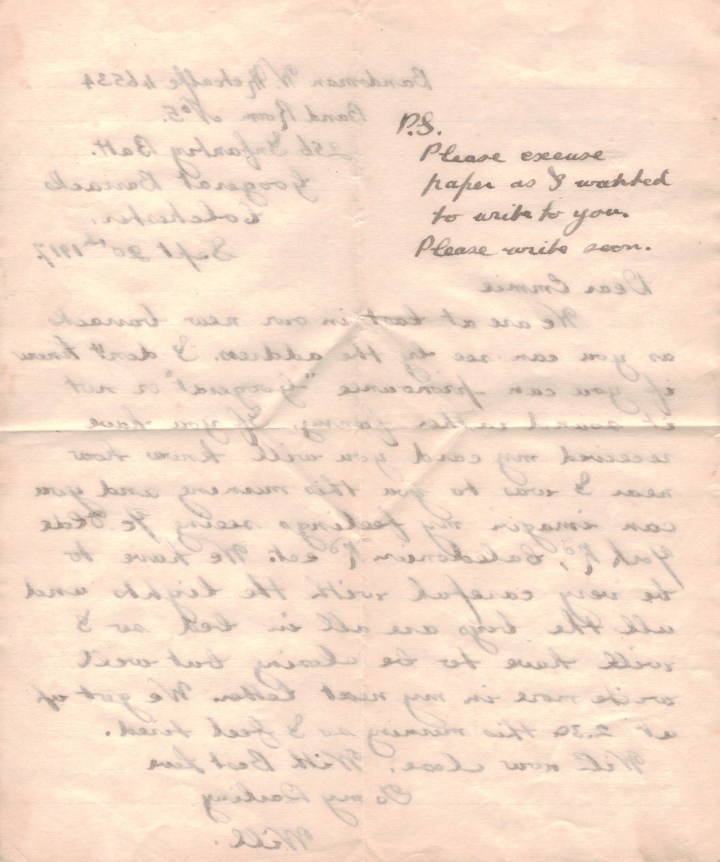 P.S.
Please excuse
paper as I wanted
to write to you.
Please write soon.
Bandsman W. Metcalfe 46534
Band Room No 5.
256 Infantry Batt.
Goojerat Barracks
Colchester.
Sept 20th 1917.
Dear Emmie
We are at last in our new barracks
as you can see by the address. I don't know
if you can pronounce "Goojerat" or not
it sounds rather funny. If you have
received my card you will know how
near I was to you this morning and you
can imagin my feelings seeing Ye Olde
York Rd, Caledonian Rd ect. We have to
be very careful with the lights and
all the boys are all in bed so I
will have to be closing but will
write more in my next letter. We got up
at 2.30 this morning so I feel tired.
Will now close. With Best Love
To my Darling
Will.